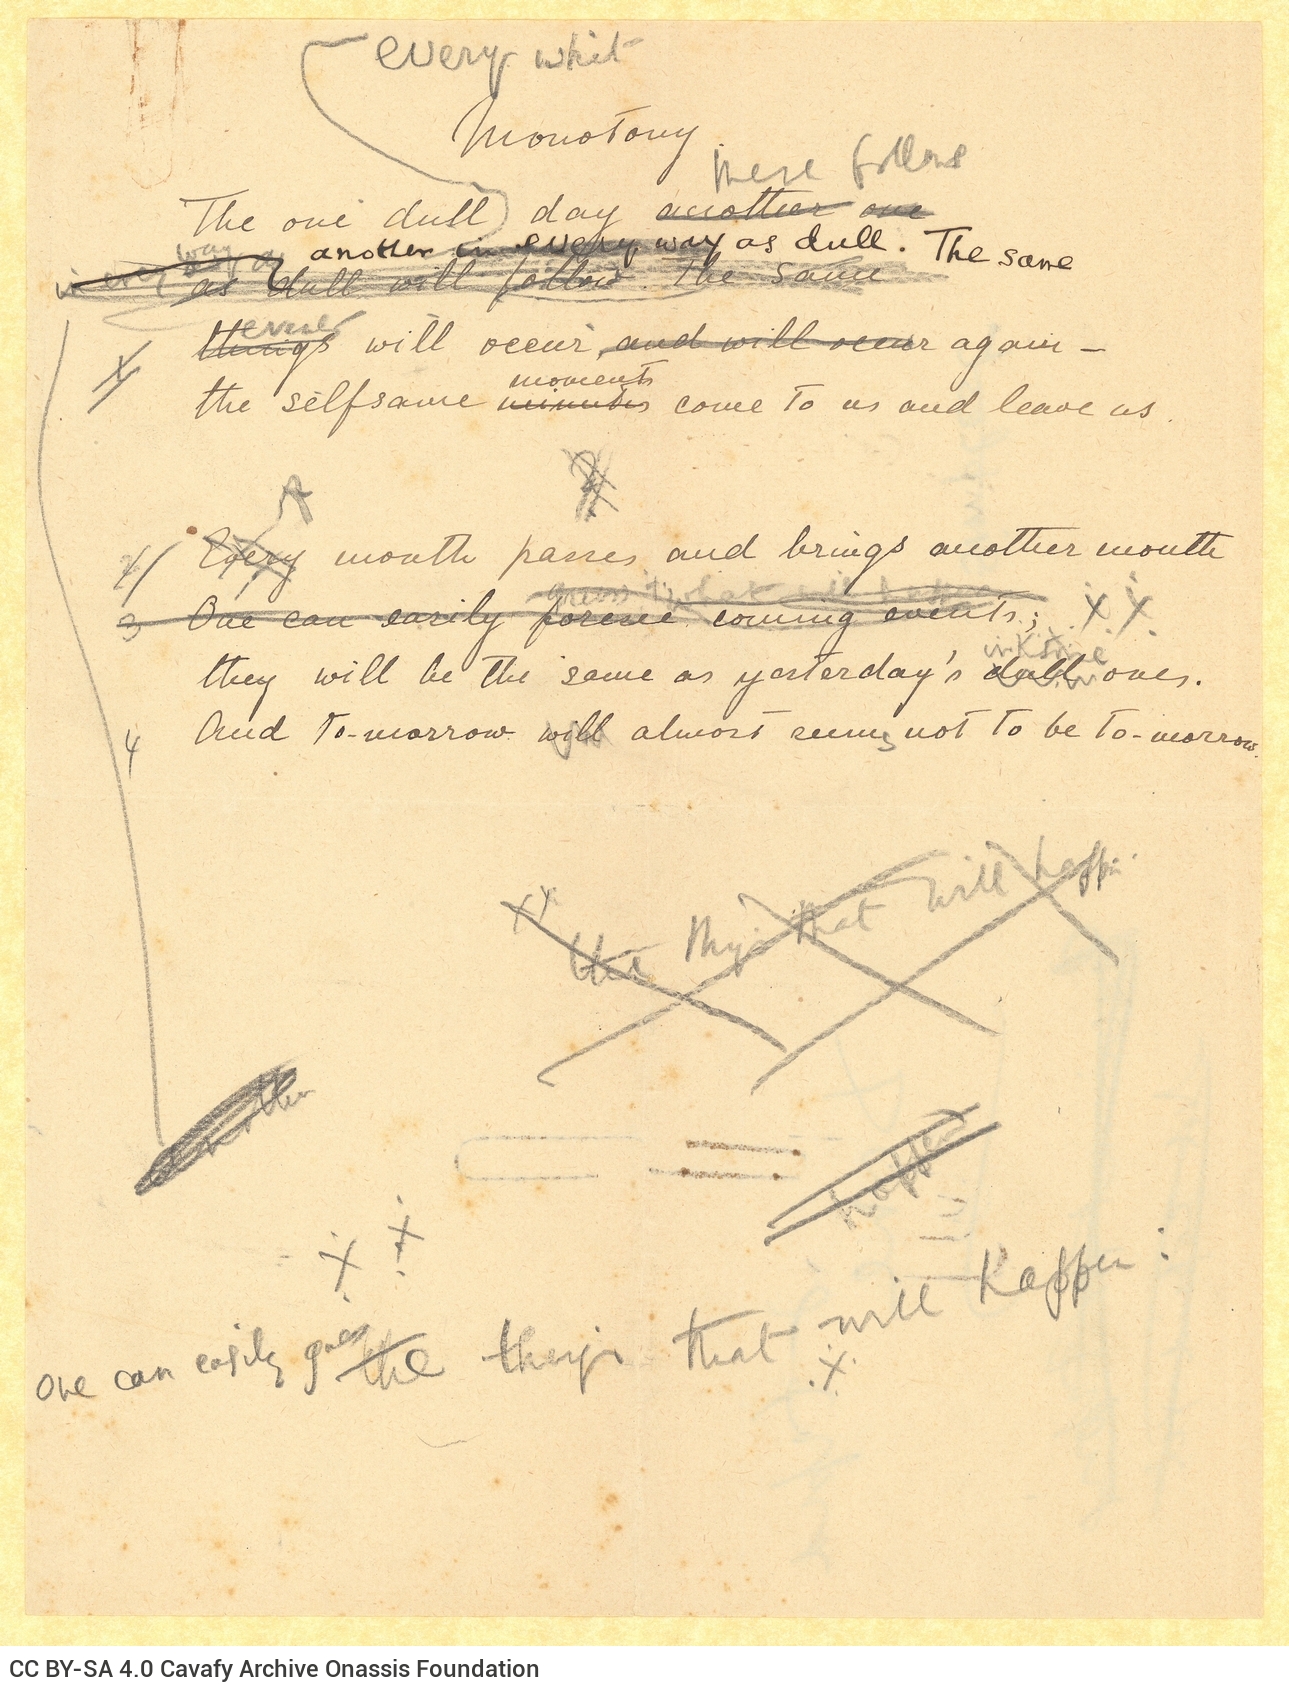 every whit
Monotony
there follows
The one dull day another one
another in every way as dull. The same
way as
as dull will follow. The same
things will occur, and will occur again –
moments
the selfsame minutes come to us and leave us.
A
Every month passes and brings another month
guess what will happen
3 One can easily foresee coming events; X X
they will be the same as yesterday's dull ones.
4 And to-morrow will almost seems not to be to-morrow.
XX
the things that will happen
another
happen
X X
One can easily guess the things that will happen:
X
CC BY-SA 4.0 Cavafy Archive Onassis Foundation